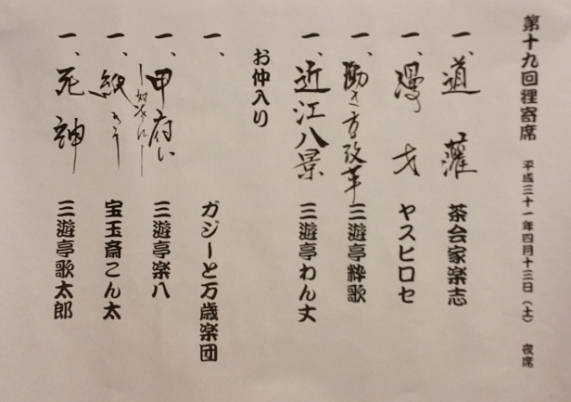 第十九回狸寄席 平成三十一年四月十三日（土） 夜席
一、道灌 茶会家楽志
一、漫才 ヤスヒロセ
一、働き方改革 三遊亭粋歌
一、近江八景 三遊亭わん丈
お仲入り
一、 ガジーと万歳楽団
一、甲府い 三遊亭楽八
一、紙きり 宝玉斎こん太
一、死神 三遊亭歌太郎